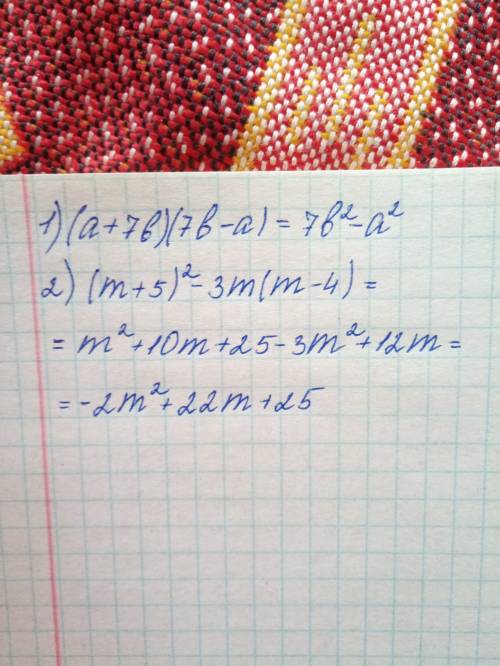 1) (a+7b)(7b-a) = 7b²-a²
2) (m+5)²-3m(m-4) =
= m²+10m+25-3m²+12m =
= -2m²+22m+25